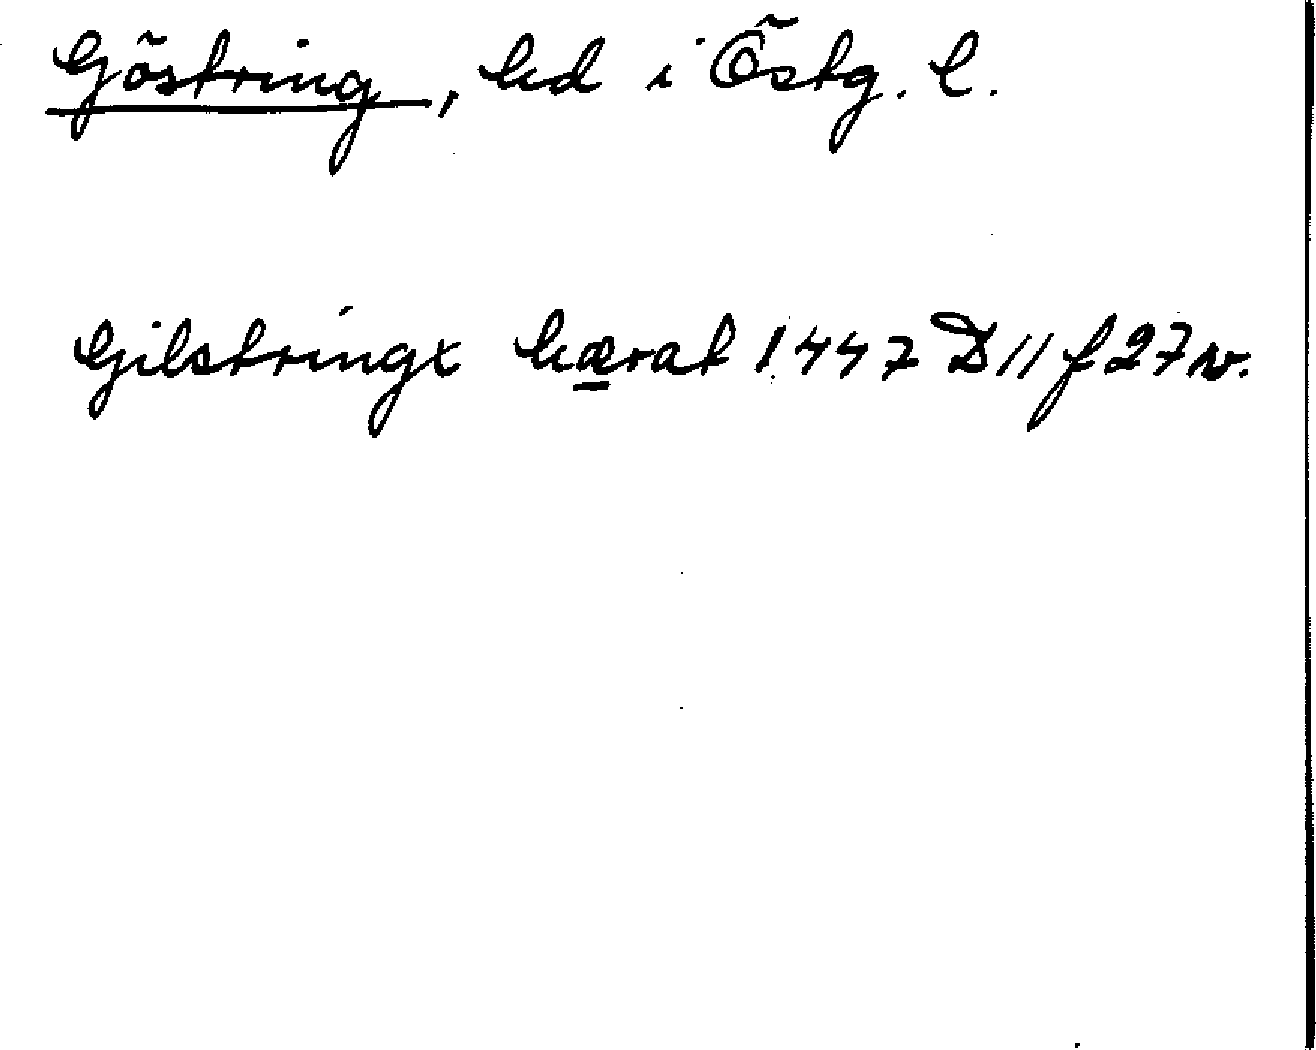 Göstring, hd i Östg. l.
Gilstringx hærat 1447 D 11 f 27 v.